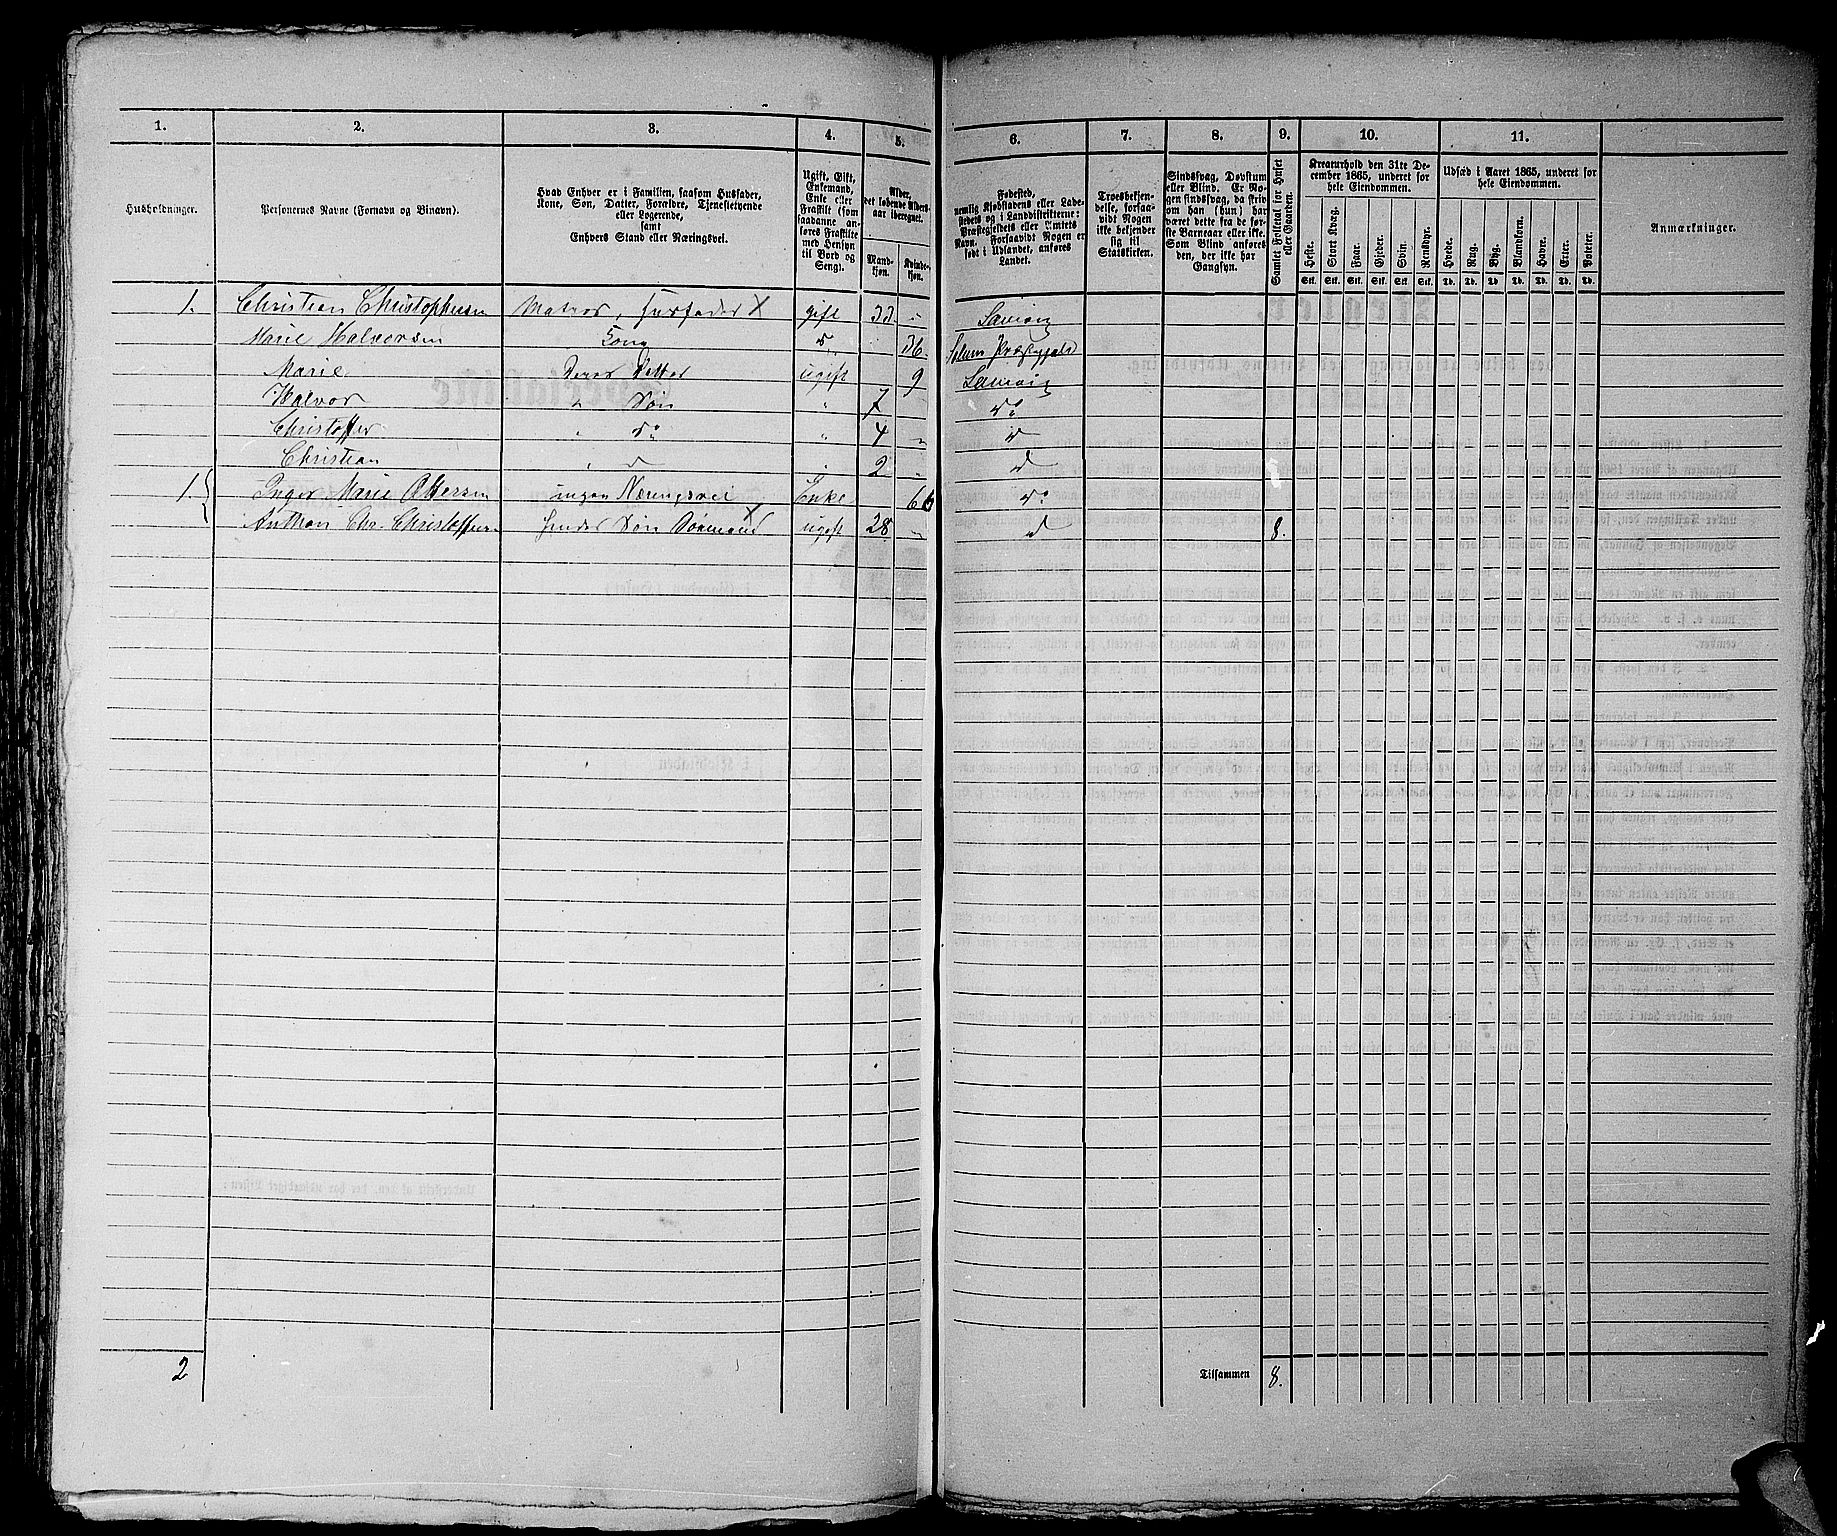 1. 2. 3. 4. 5. 6. 7. 8. 9. 10. 11.
Husholdninger.
Personernes Navne (Fornavn og Binavn).
Hvad Enhver er i Familien, saasom Husfader,
Kone, Søn, Datter, Forældre, Tjenestetyende
eller Logerende,
samt
Enhvers Stand eller Næringsvei.
Ugift, Gift,
Enkemand,
Enke eller
Fraskilt (som
saadanne an-
føres Fraskilte
med Hensyn
til Bord og
Seng).
Alder,
det løbende Alders-
aar iberegnet.
Mand-
kjøn.
Kvinde-
kjøn.
Fødested,
nemlig Kjøbstadens eller Lade-
stedets og i Landdistrikterne:
Præstegjeldets eller Amtets
Navn. Forsaavidt Nogen er
født i Udlandet, anføres
Landet.
Troesbekjen-
delse, forsaa-
vidt Nogen
ikke bekjender
sig til
Statskirken.
Sindssvag, Døvstum
eller Blind. Er No-
gen sindssvag, da skriv
om han (hun) har
været dette fra de før-
ste Barneaar eller ikke.
Som Blind anføres
den, der ikke har
Gangsyn.
Samlet Folketal for Huset
eller Gaarden.
Kreaturhold den 31te De-
cember 1865, underet for
hele Eiendommen.
Heste. Stort Kvæg. Faar. Gjeder. Svin. Rensdyr.
Stk. Stk. Stk. Stk. Stk. Stk.
Udsæd i Aaret 1865, underet for
hele Eiendommen.
Hvede. Rug. Byg. Blandkorn. Havre. Erter. Poteter.
Td. Td. Td. Td. Td. Td. Td.
Anmærkninger.
1. Christian Christophersen Matros, Husfader X gift 33 "
Marie Halvorsen Kone d 36 Solum Præstegjeld
Marie Deres Datter ugift 9
Halvor " Søn " 7 do
Christoffer " do " 4 " d
Christian " d " 2 " d
1. Inger Marie Ottersen ingen Næringsvei Enke 66 do
Anthon Chr. Christoffersen hendes Søn Sømand X ugift 28 " d 8.
2 Tilsammen 8.